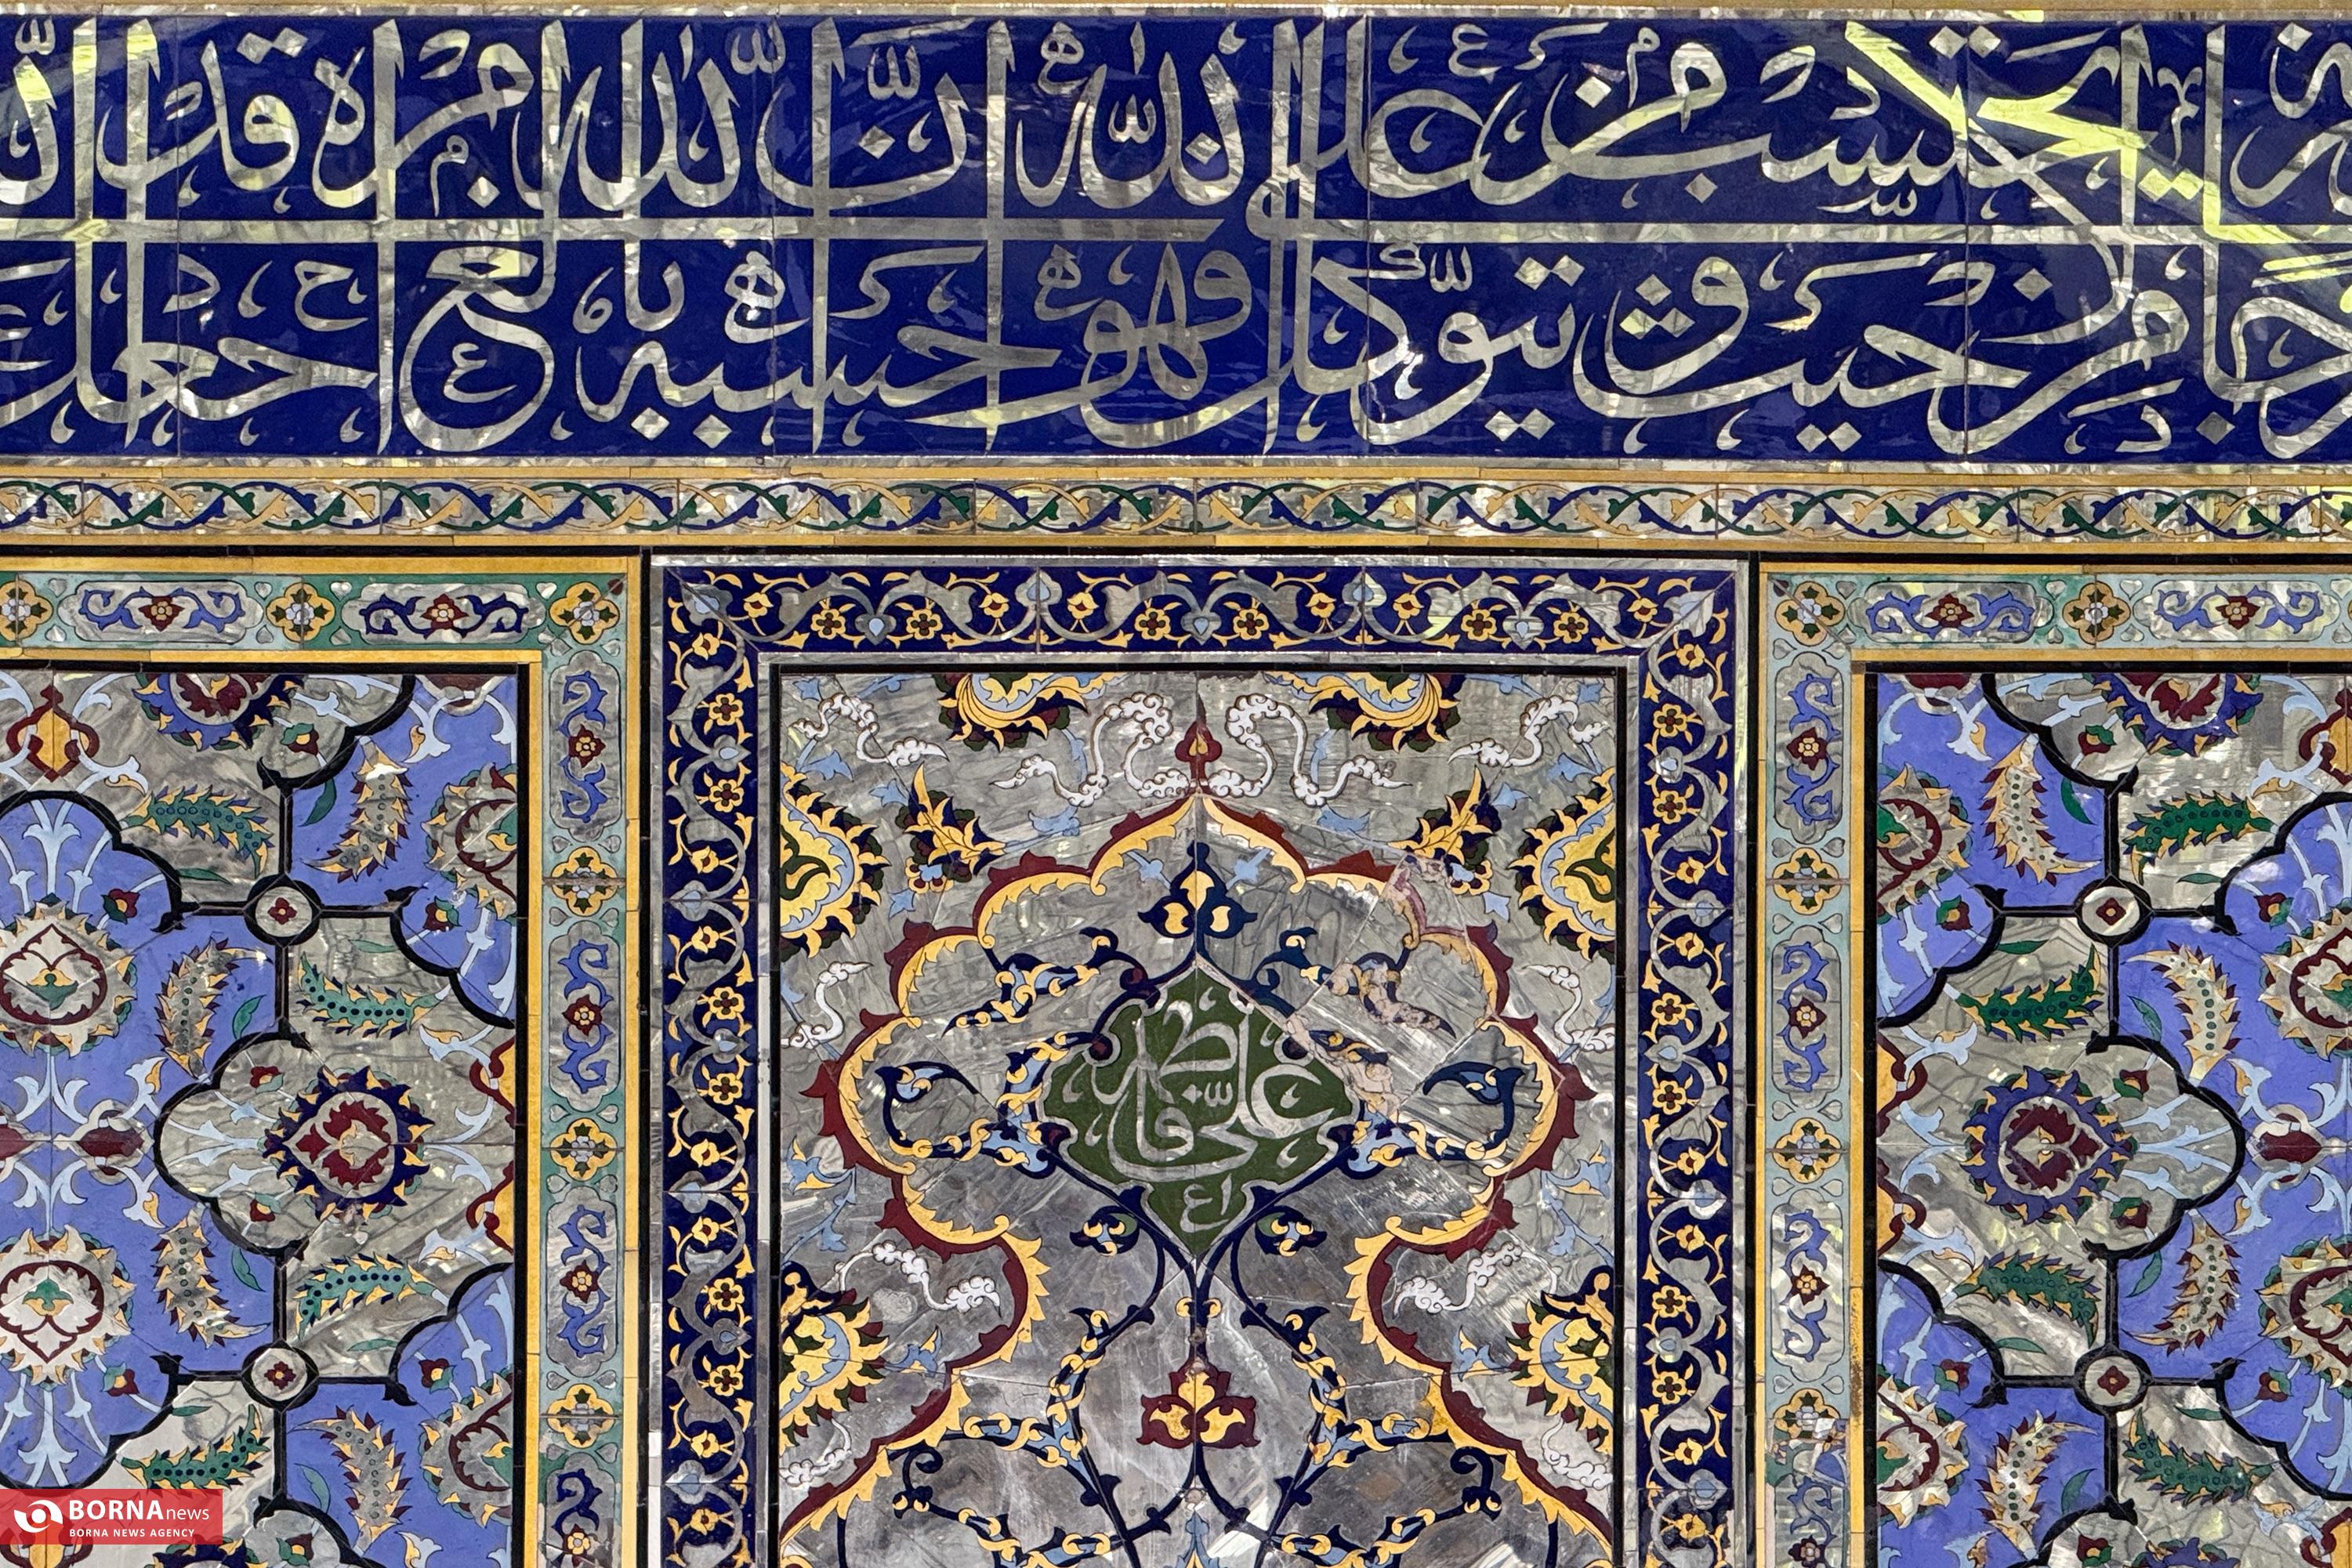 من حيث لا يحتسب ومن يتوكل على الله فهو حسبه إن الله بالغ أمره قد جعل
علي
فاطمه
BORNA news
BORNA NEWS AGENCY